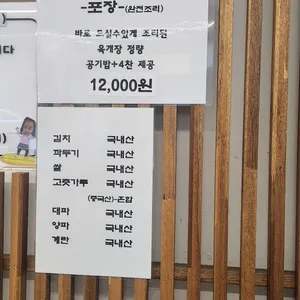 -포장-(완전조리)
바로 드실수있게 조리된
육개장 정량
공기밥+4찬 제공
12,000원
니다
김치 국내산
깍두기 국내산
쌀 국내산
고춧가루 국내산
(중국산)-혼합
대파 국내산
양파 국내산
계란 국내산